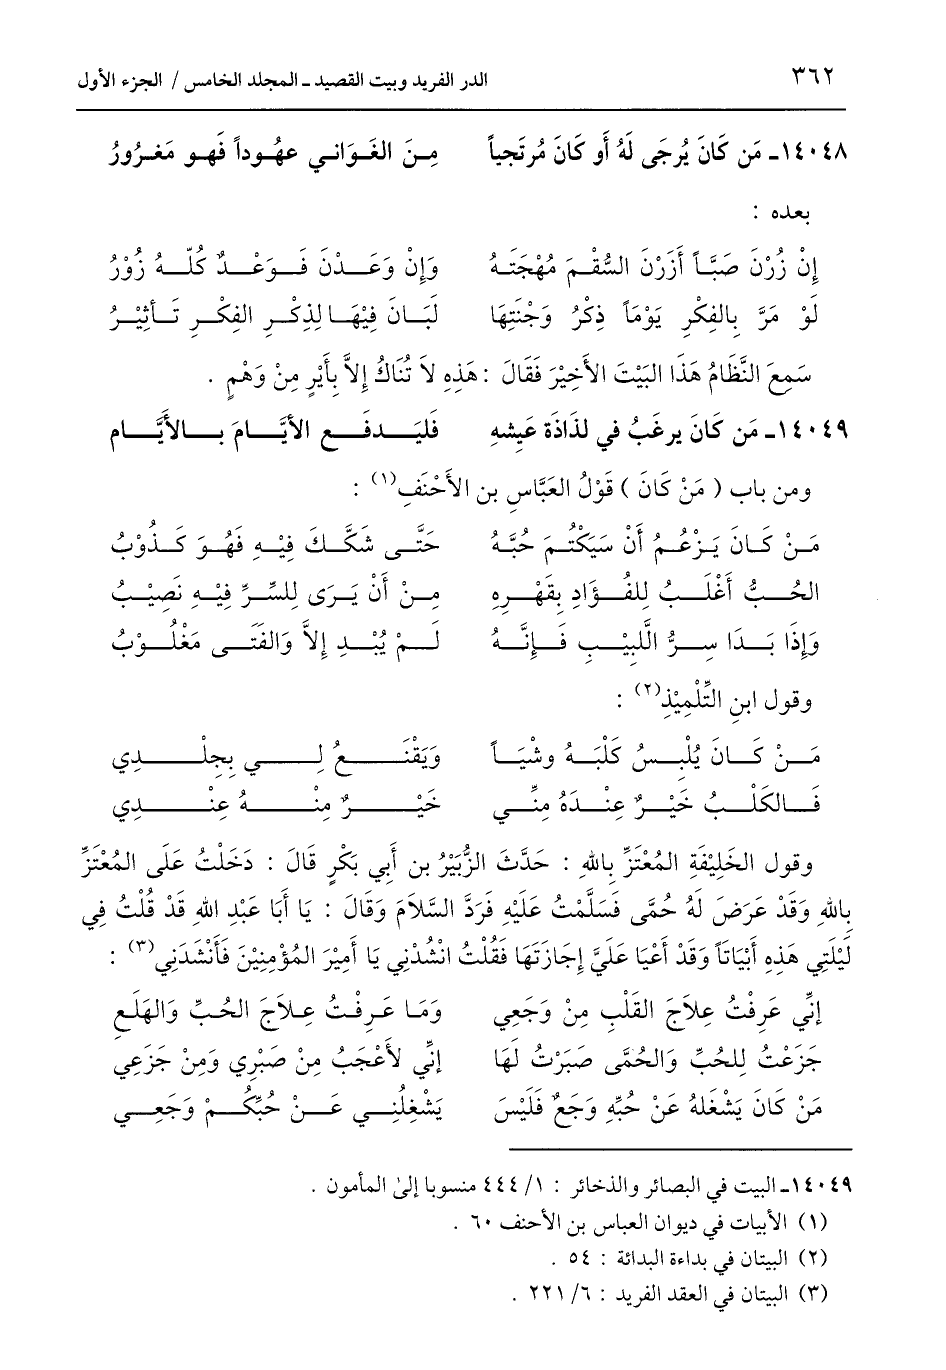 ٣٦٢ الدر الفريد وبيت القصيد ـ المجلد الخامس / الجزء الأول
١٤٠٤٨ـ مَن كَانَ يُرجَى لَهُ أَو كَانَ مُرتَجياً مِنَ الغَوَانِي عهُوداً فَهو مَغرُورُ
بعده :
إِنْ زُرْنَ صَبَّاً أَزَرْنَ السُّقْمَ مُهْجَتَهُ وَإِنْ وَعَدْنَ فَوَعْدٌ كُلّهُ زُوْرُ
لَوْ مَرَّ بِالفِكْرِ يَوْمَاً ذِكْرُ وَجْنَتِهَا لَبَانَ فِيْهَا لِذِكْرِ الفِكْرِ تَأثِيْرُ
سَمِعَ النَّظَامُ هَذَا البَيْتَ الأَخِيْرَ فَقَالَ : هَذِهِ لاَ تُنَاكُ إِلاَّ بِأَيرٍ مِنْ وَهْمٍ .
١٤٠٤٩ـ مَن كَانَ يرغَبُ في لذَاذَة عَيشهِ فَليَدفَع الأيَّامَ بالأَيَّام
ومن باب ( مَنْ كَانَ ) قَوْلُ العَبَّاسِ بن الأَحْنَفِ(١) :
مَنْ كَانَ يَزْعُمُ أَنْ سَيَكْتُمَ حُبَّهُ حَتَّى شَكَّكَ فِيْهِ فَهُوَ كَذُوْبُ
الحُبُّ أَغْلَبُ لِلفُؤَادِ بِقَهْرِهِ مِنْ أَنْ يَرَى لِلسِّرِّ فِيْهِ نَصِيْبُ
وَإِذَا بَدَا سِرُّ الَّلبِيْبِ فَإِنَّهُ لَمْ يُبْدِ إِلاَّ وَالفَتَى مَغْلُوْبُ
وقول ابنِ التِّلْمِيْذِ(٢) :
مَنْ كَانَ يُلْبِسُ كَلْبَهُ وشْيَاً وَيَقْنَعُ لِي بِجِلْدِي
فَالكَلْبُ خَيْرٌ عِنْدَهُ مِنِّي خَيْرٌ مِنْهُ عِنْدِي
وقول الخَلِيْفَةِ المُعْتَزِّ بالله : حَدَّثَ الزُّبَيْرُ بن أَبِي بَكْرٍ قَالَ : دَخَلْتُ عَلَى المُعْتَزِّ
بِاللهِ وَقَدْ عَرَضَ لَهُ حُمَّى فَسَلَّمْتُ عَلَيْهِ فَرَدَّ السَّلاَمَ وَقَالَ : يَا أَبَا عَبْدِ اللهِ قَدْ قُلْتُ فِي
لَيْلَتِي هَذِهِ أَبْيَاتَاً وَقَدْ أَعْيَا عَلَيَّ إِجَازَتَهَا فَقُلْتُ انْشُدْنِي يَا أَمِيْرَ المُؤْمِنِيْنَ فَأَنْشَدَنِي(٣) :
إِنِّي عَرِفْتُ عِلاَجَ القَلْبِ مِنْ وَجَعِي وَمَا عَرِفْتُ عِلاَجَ الحُبِّ وَالهَلَعِ
جَزَعْتُ لِلحُبِّ وَالحُمَّى صَبَرْتُ لَهَا إِنِّي لأَعْجَبُ مِنْ صَبْرِي وَمِنْ جَزَعِي
مَنْ كَانَ يَشْغَلهُ عَنْ حُبِّهِ وَجَعٌ فَلَيْسَ يَشْغِلُنِي عَنْ حُبِّكُمْ وَجَعِي
١٤٠٤٩ـ البيت في البصائر والذخائر : ١/ ٤٤٤ منسوبا إلى المأمون .
(١) الأبيات في ديوان العباس بن الأحنف ٦٠ .
(٢) البيتان في بداءة البدائة : ٥٤ .
(٣) البيتان في العقد الفريد : ٦/ ٢٢١ .